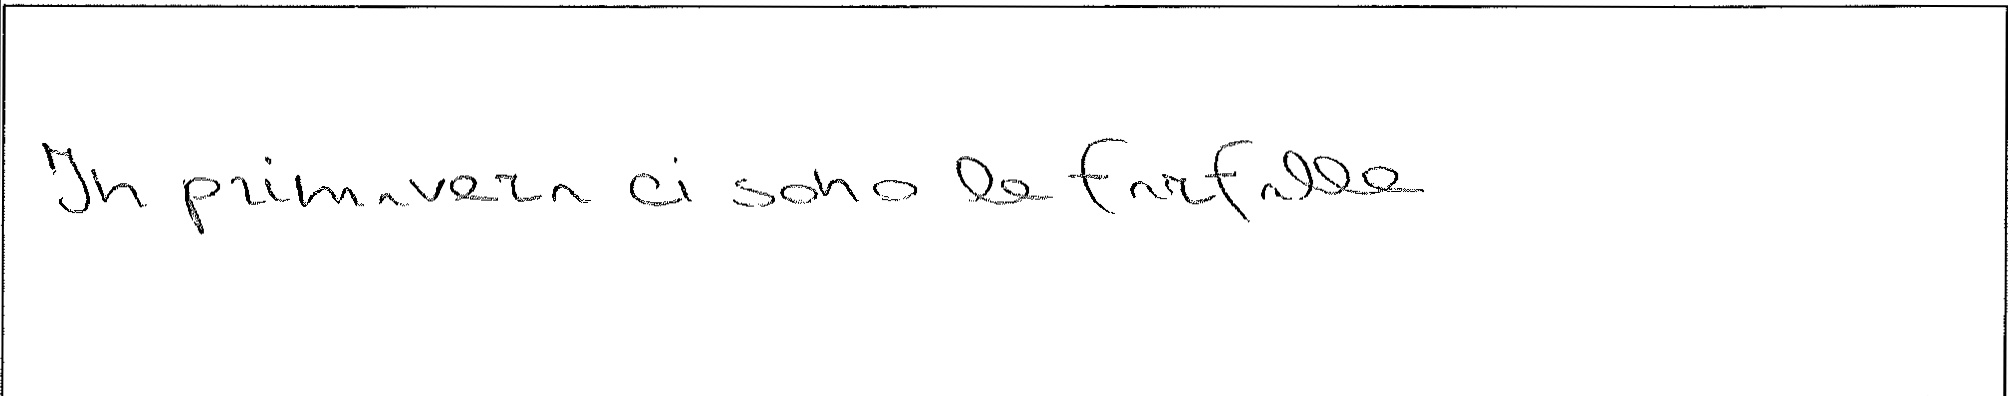 In primavera ci sono le farfalle